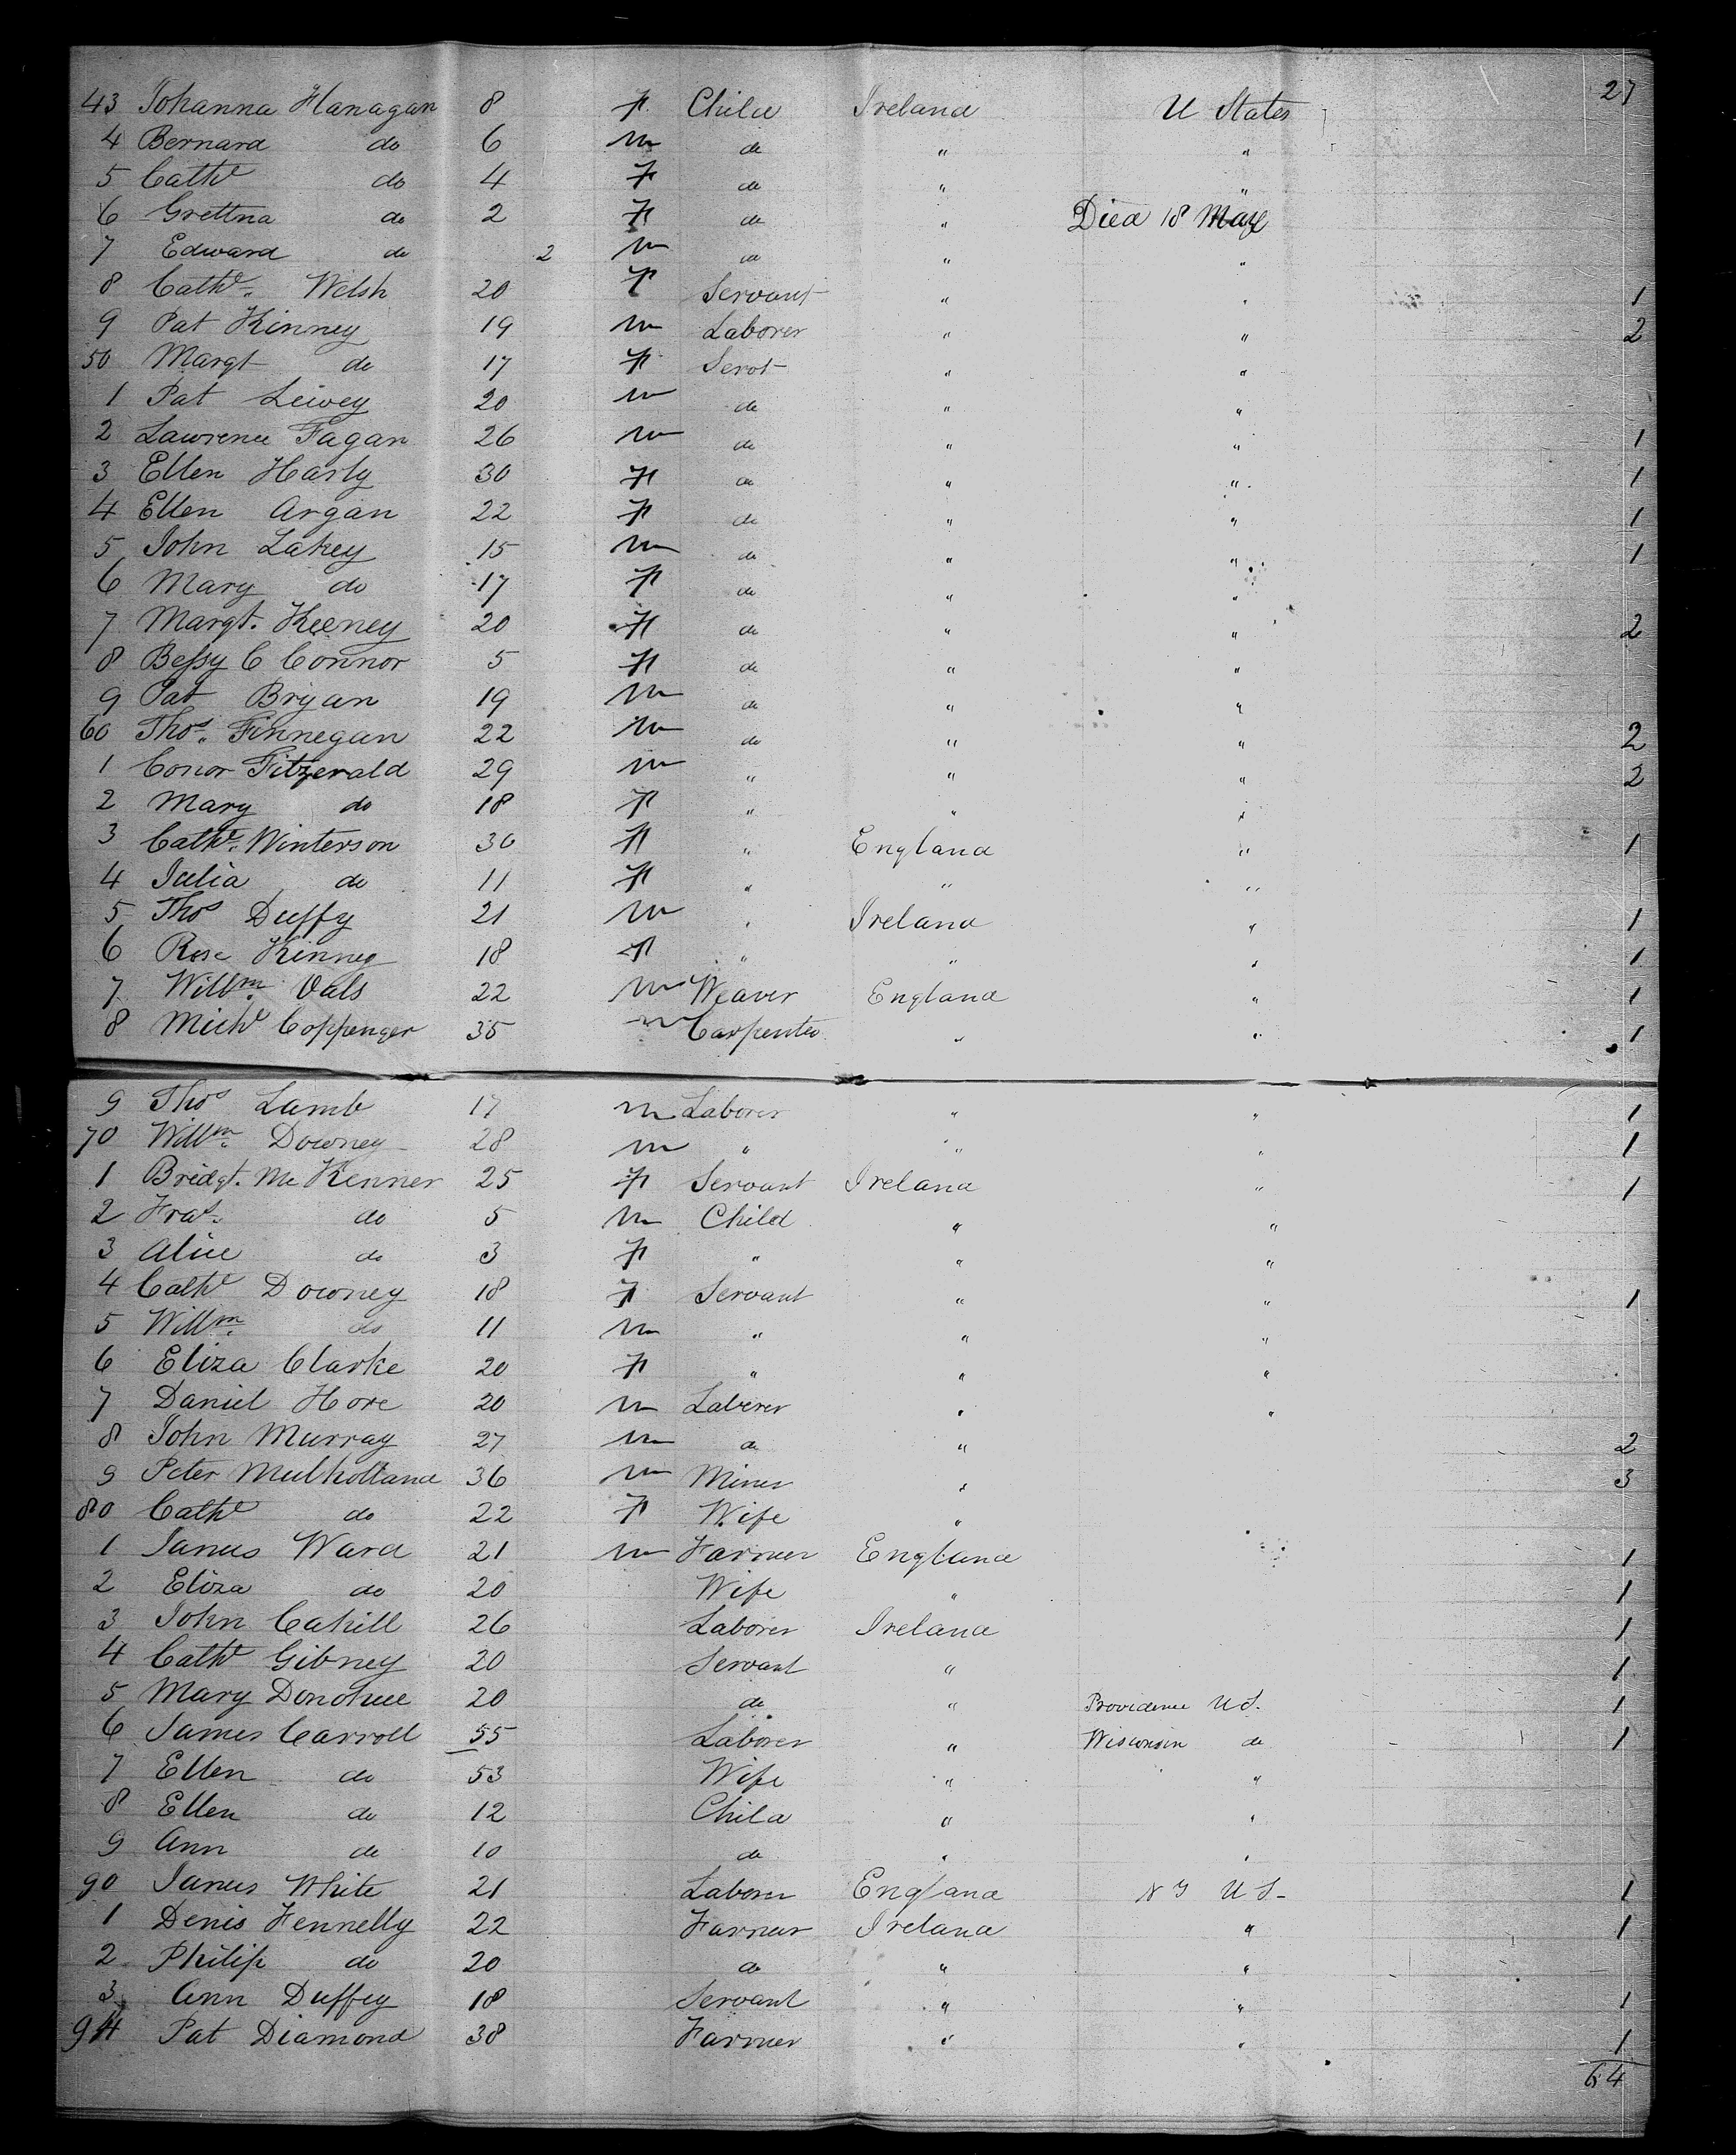 27
43 Johanna Flanagan 8 F. Child Ireland U States
4 Bernard do 6 m do " "
5 Cathe do 4 F do " "
6 Grettna do 2 F do " Died 18 May
7 Edward do 2 m do " "
8 Cathe. Welsh 20 F Servant " " 1
9 Pat Kinney 19 m Laborer " " 2
50 Margt do 17 F Servt " "
1 Pat 20 m do " "
2 Lawrence Fagan 26 m do " " 1
3 Ellen Harly 30 F do " " 1
4 Ellen Argan 22 F do " " 1
5 John Lakey 15 m do " " 1
6 Mary do 17 F do " "
7 Margt. Keeney 20 F do " " 2
8 Bessy C Connor 5 F do " "
9 Pat Bryan 19 m do " "
60 Thos. Finnegan 22 m do " " 2
1 Conor Fitzerald 29 m " " " 2
2 Mary do 18 F " " "
3 Cathe. Winterson 30 F " England " 1
4 Julia do 11 F " " "
5 Thos Duffy 21 m " Ireland " 1
6 Rose Kinney 18 F " " " 1
7 Willm. Vals 22 m Weaver England " 1
8 Michl Coppenger 35 m Carpenter " " 1
9 Thos Lamb 17 m Laborer " " 1
70 Willm. Downey 28 m " " " 1
1 Bridgt. Mc Kenner 25 F Servant Ireland " 1
2 Fras. do 5 m Child " "
3 Alice do 3 F " " "
4 Cathe Downey 18 F Servant " " 1
5 Willm. do 11 m " " "
6 Eliza Clarke 20 F " " "
7 Daniel Hore 20 m Laborer " "
8 John Murray 27 m do " 2
9 Peter Mulholland 36 m Miner " 3
80 Cathe do 22 F Wife "
1 James Ward 21 m Farmer England 1
2 Eliza do 20 Wife " 1
3 John Cahill 26 Laborer Ireland 1
4 Cathe Gibney 20 Servant " 1
5 Mary Donohue 20 do " Providence U S. 1
6 James Carroll 55 Laborer " Wisconsin do 1
7 Ellen do 53 Wife " "
8 Ellen do 12 Child " "
9 Ann do 10 do " "
90 James White 21 Laborer England N Y U S- 1
1 Denis Fennelly 22 Farmer Ireland " 1
2 Philip do 20 do " "
3 Ann Duffey 18 Servant " " 1
94 Pat Diamond 38 Farmer " " 1
64